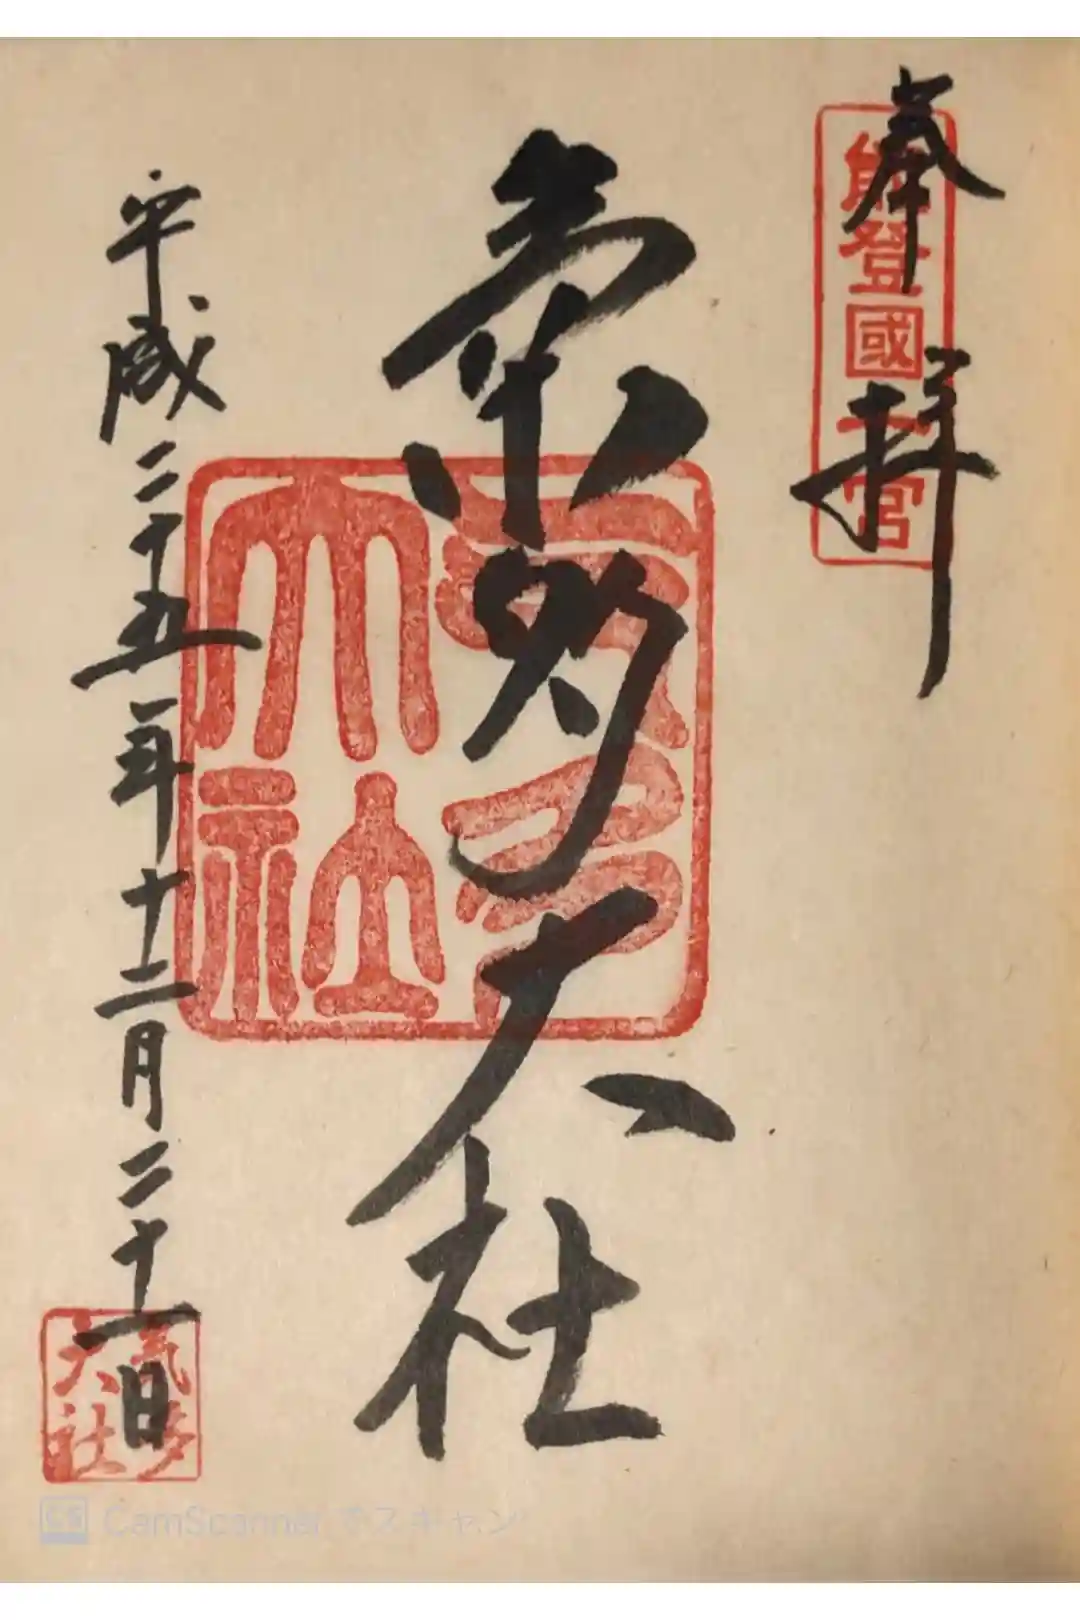 奉拝
能登國一宮
氣多大社
氣多大社
平成二十五年十二月二十一日
氣多大社
CamScanner でスキャン